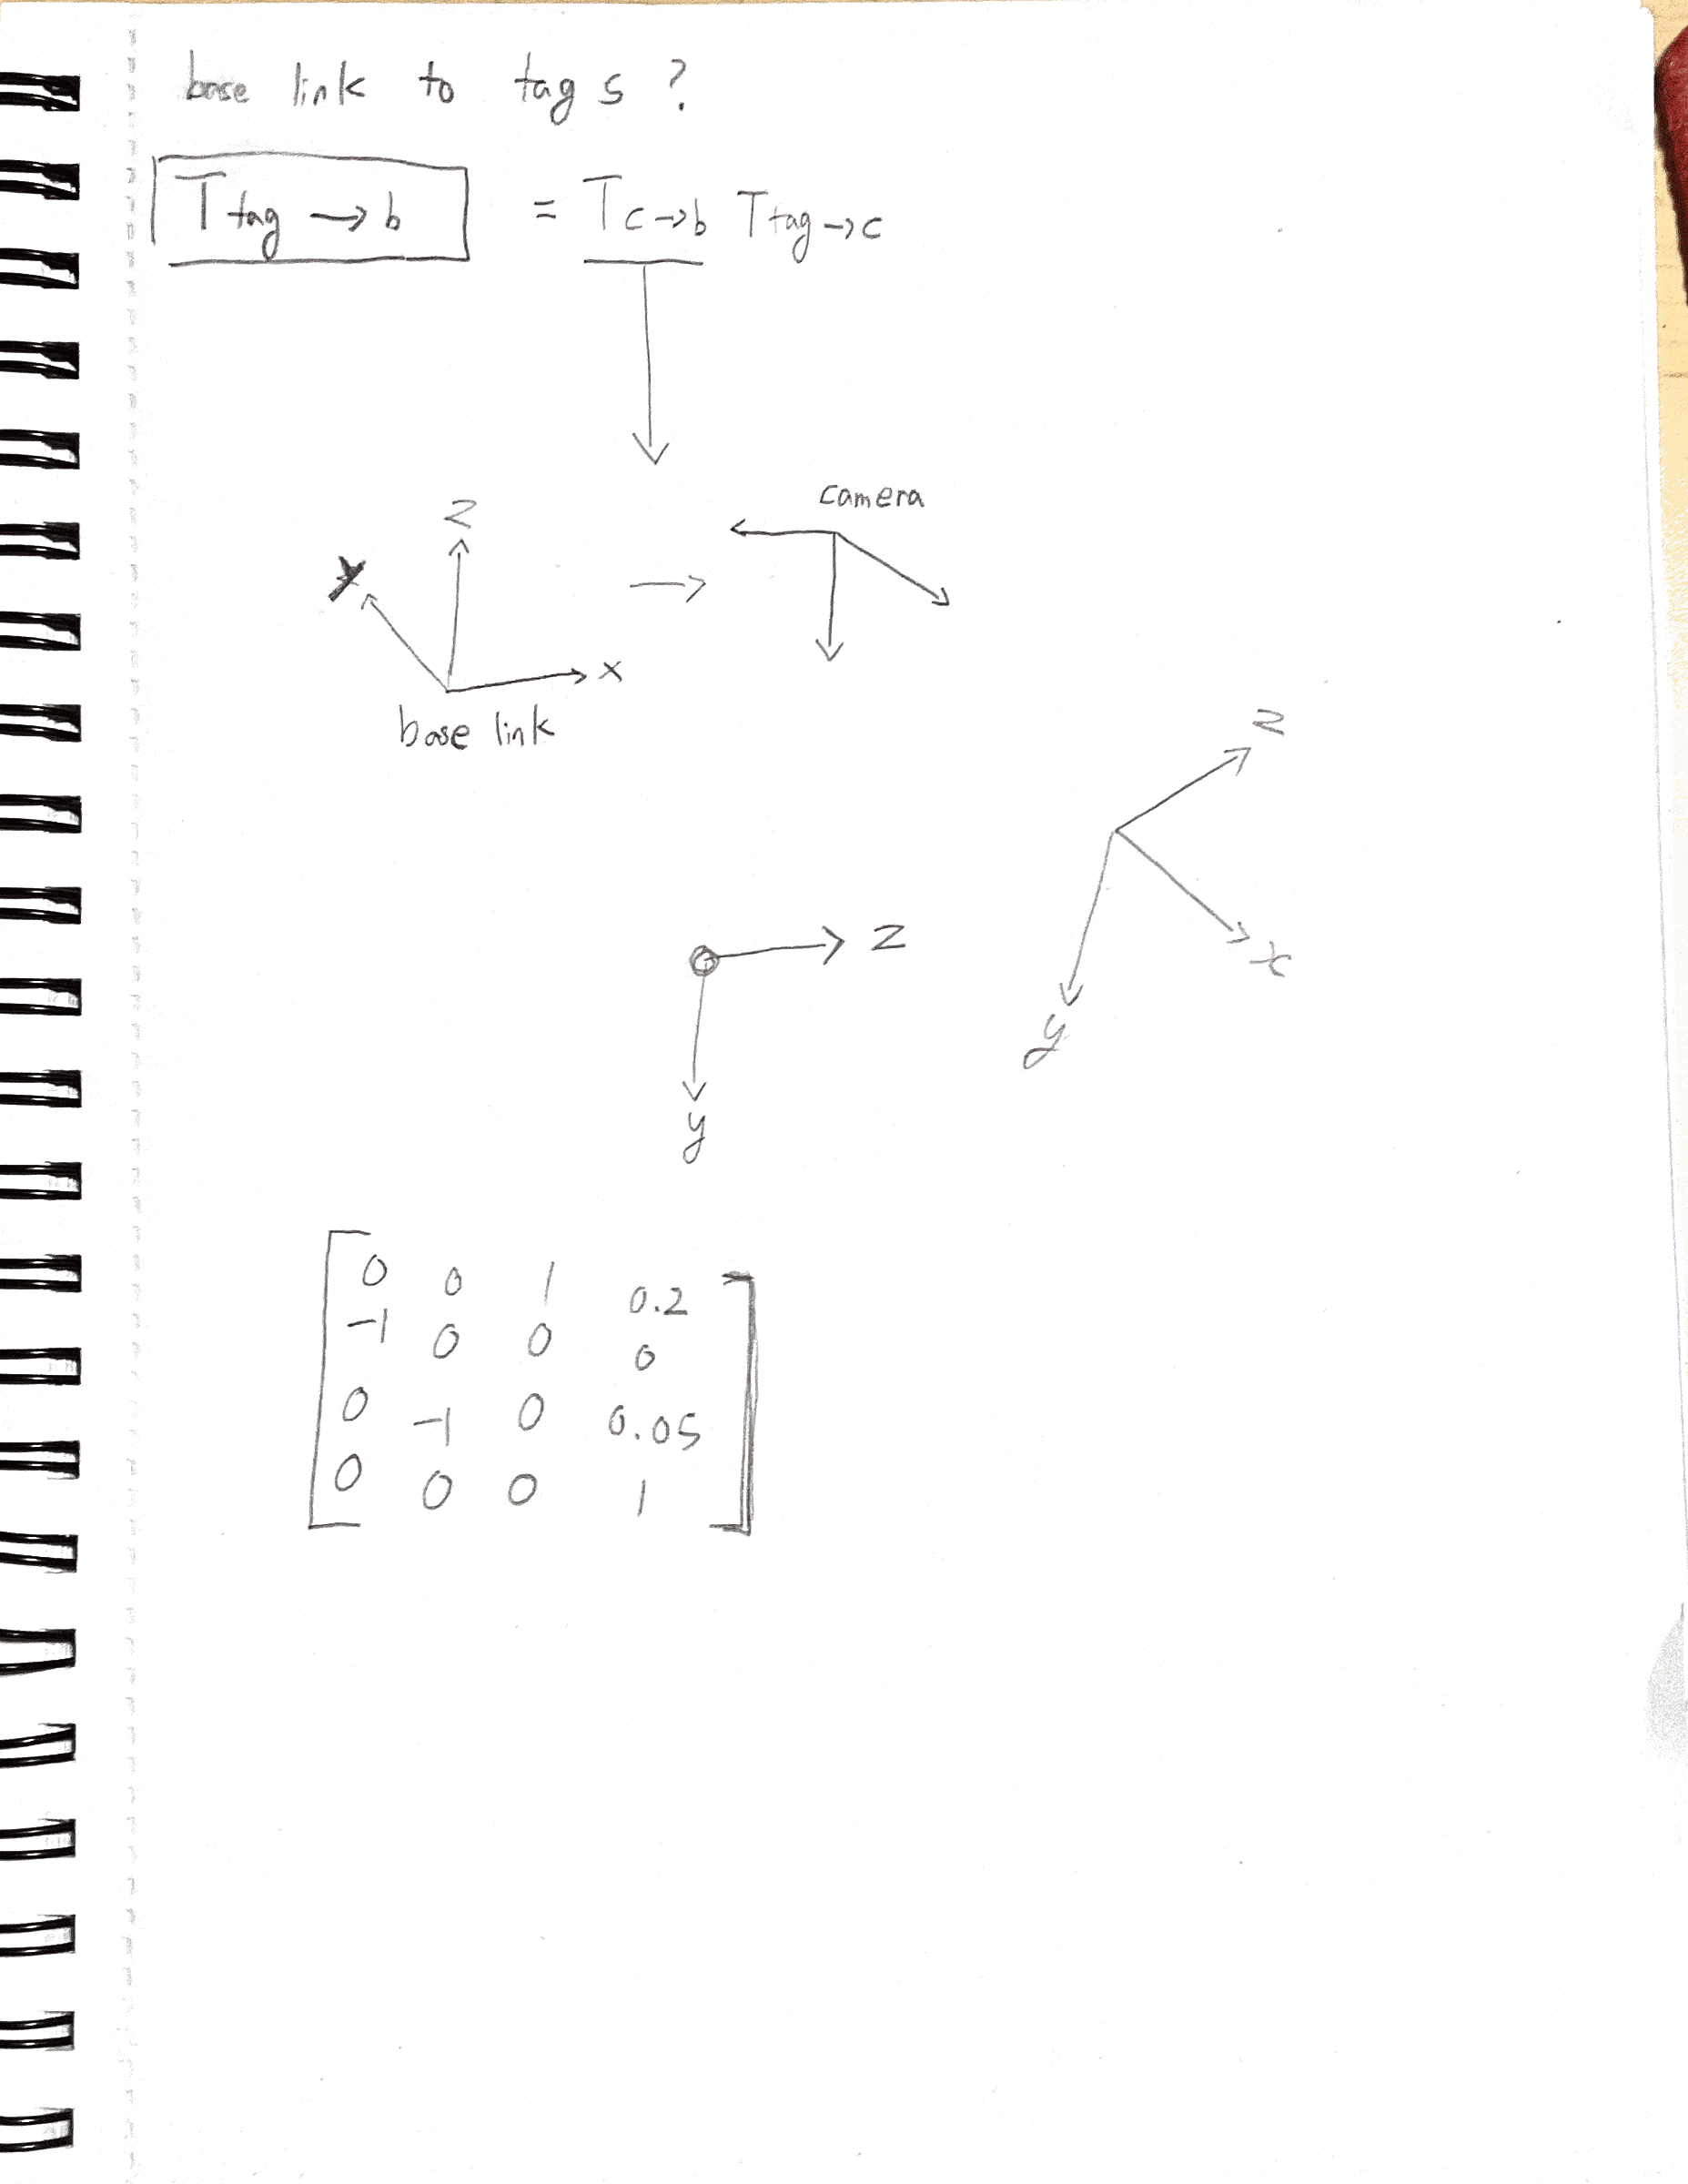 base link to tag s ?
T tag → b = T c→b T tag→c
camera
z
y
x
base link
z
z
x
y
y
0 0 1 0.2
-1 0 0 0
0 -1 0 0.05
0 0 0 1